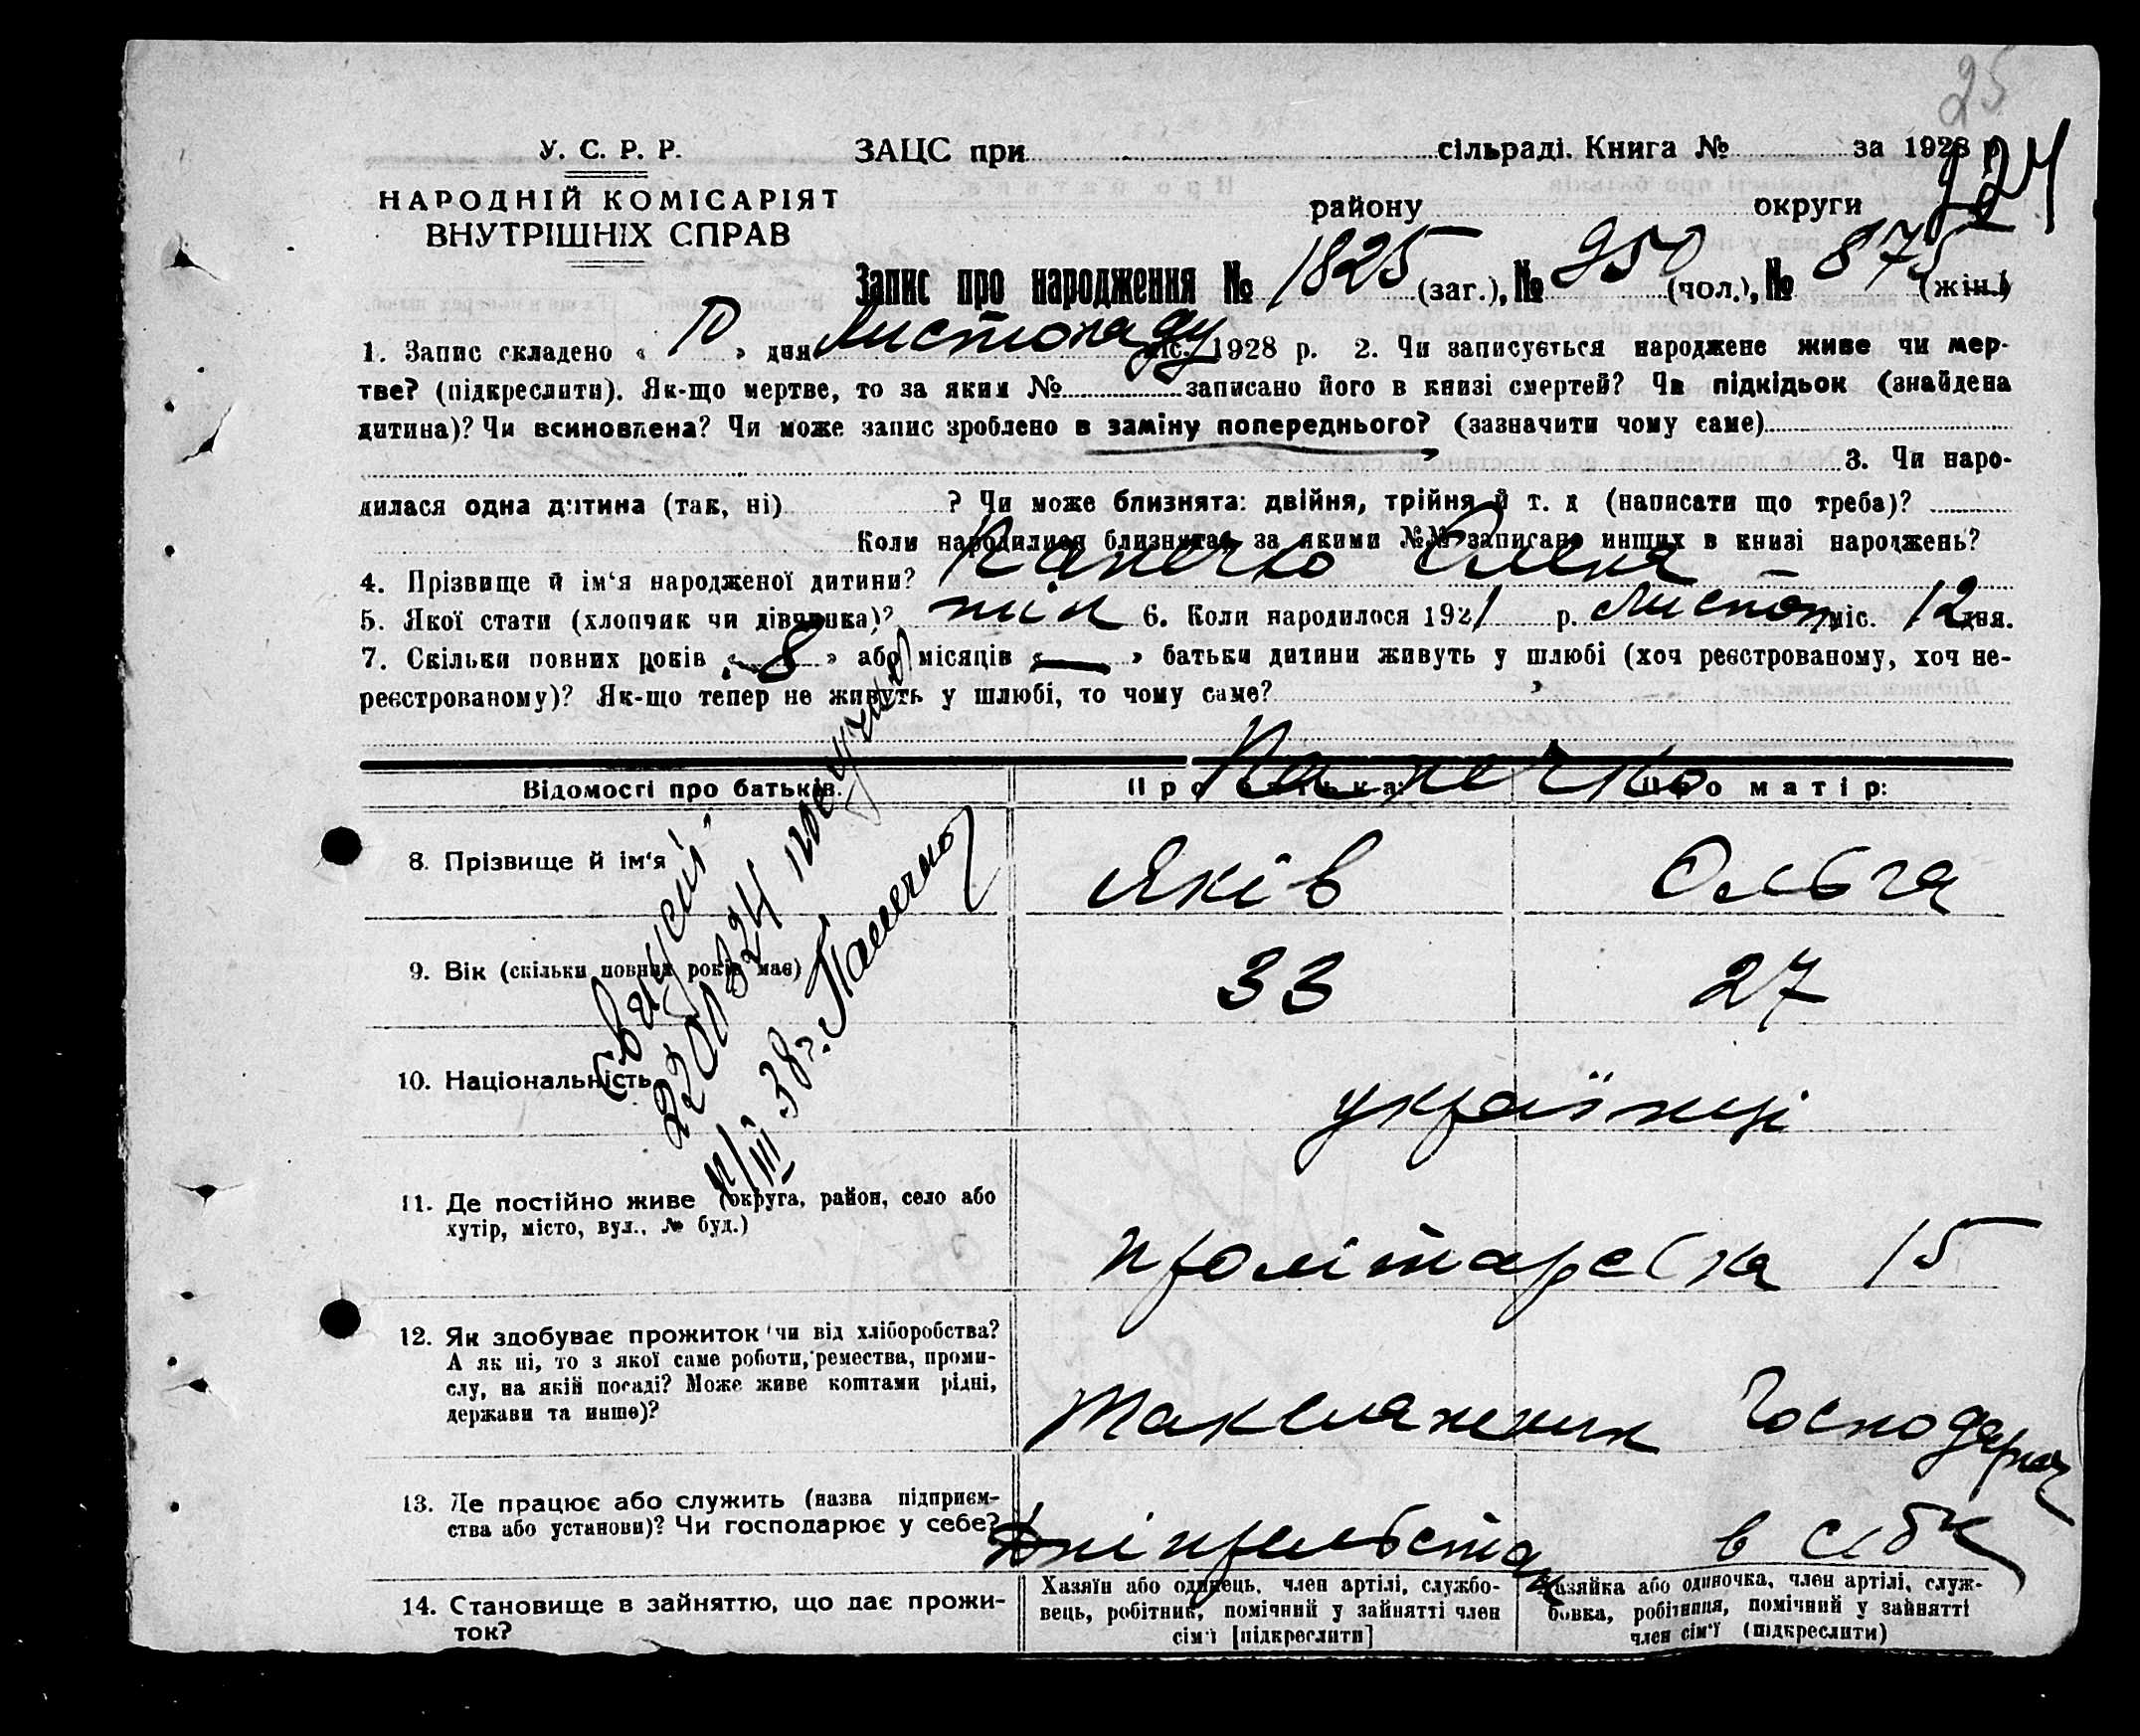 25
224
У. С. Р. Р.
НАРОДНІЙ КОМІСАРІЯТ
ВНУТРІШНІХ СПРАВ
ЗАЦС при сільраді. Книга № за 1928 р.
району округи
Запис про народження № 1825 (заг.), № 950 (чол.), № 875 (жін.)
1. Запис складено « 10 » дня листопаду міс. 1928 р. 2. Чи записується народжене живе чи мер-
тве? (підкреслити). Як-що мертве, то за яким № записано його в книзі смертей? Чи підкідьок (знайдена
дитина)? Чи всиновлена? Чи може запис зроблено в заміну попереднього? (зазначити чому саме)
3. Чи наро-
дилася одна дитина (так, ні) ? Чи може близнята: двійня, трійня й т. д (написати що треба)?
Коли народилися близнята, за якими №№ записано инших в книзі народжень?
4. Прізвище й ім‘я народженої дитини? Панечко
5. Якої стати (хлопчик чи дівчинка)? 6. Коли народилося 1921 р. Листоп міс. 12 дня.
7. Скільки повних років « 8 » або місяців « — » батьки дитини живуть у шлюбі (хоч реєстрованому, хоч не-
реєстрованому)? Як-що тепер не живуть у шлюбі, то чому саме?
Відомості про батьків. Про батька: Про матір:
Панечко
8. Прізвище й ім‘я Яків Ольга
9. Вік (скільки повних років має) 33 27
10. Національність українці
11. Де постійно живе (округа, район, село або
хутір, місто, вул., № буд.)
пролітарська 15
12. Як здобуває прожиток чи від хліборобства?
А як ні, то з якої саме роботи, ремества, проми-
слу, на якій посаді? Може живе коштами рідні,
держави та инше)?
Господарює
13. Де працює або служить (назва підприєм-
ства або установи)? Чи господарює у себе?
в себе
14. Становище в зайняттю, що дає прожи-
ток?
Хазяїн або одинець, член артілі, службо-
вець, робітник, помічний у зайнятті член
сім‘ї [підкреслити]
Хазяйка або одиночка, член артілі, служ-
бовка, робітниця, помічний у зайнятті
член сім‘ї (підкреслити)